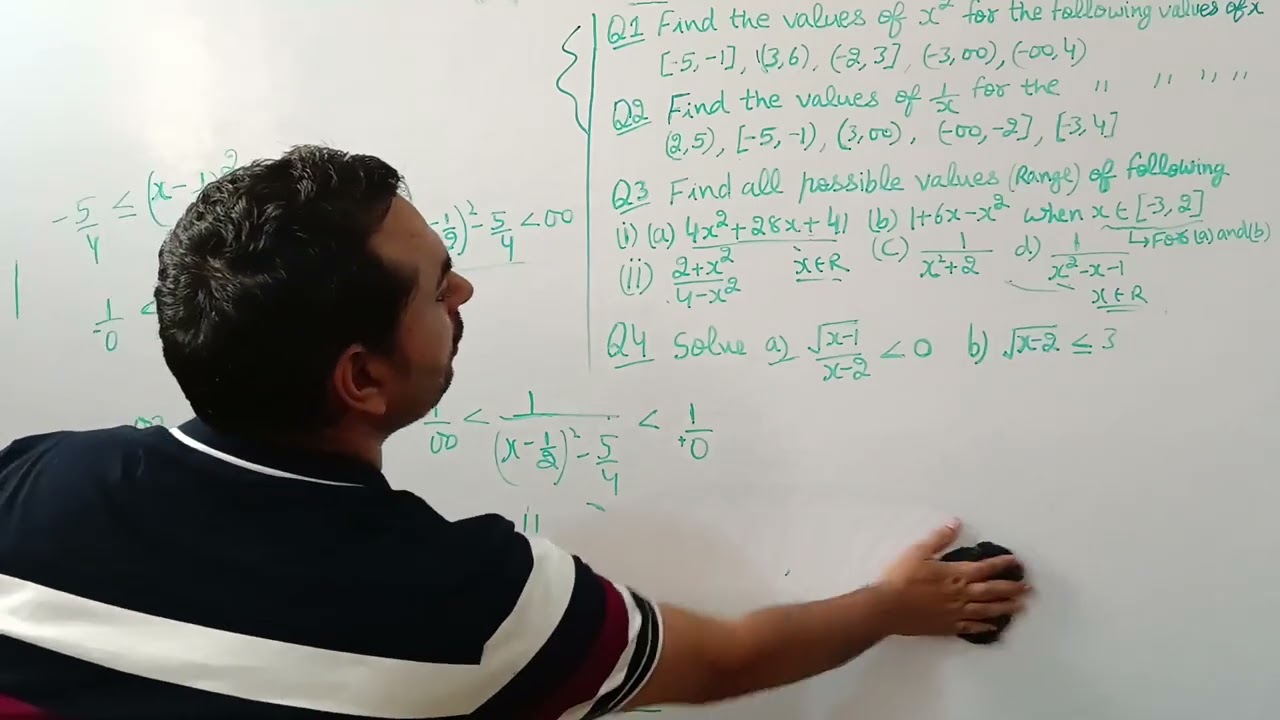 Q1 Find the values of x² for the following values of x
[-5,-1], (3,6), (-2,3], (-3,∞), (-∞,4)
Q2 Find the values of 1/x for the " " " "
(2,5), [-5,-1), (3,∞), (-∞,-2], [-3,4]
Q3 Find all possible values (Range) of following
(i) (a) 4x²+28x+41 (b) 1+6x-x² when x∈[-3,2]
↳For (a) and (b)
(ii) 2+x²/4-x² x∈R (C) 1/x²+2 d) 1/x²-x-1
x∈R
Q4 Solve a) √x-1/x-2 <0 b) √x-2 ≤ 3
-5/4 ≤ (x-
)²-5/4 <∞
1/-0 <
1/∞ < 1/(x-1/2)²-5/4 < 1/+0